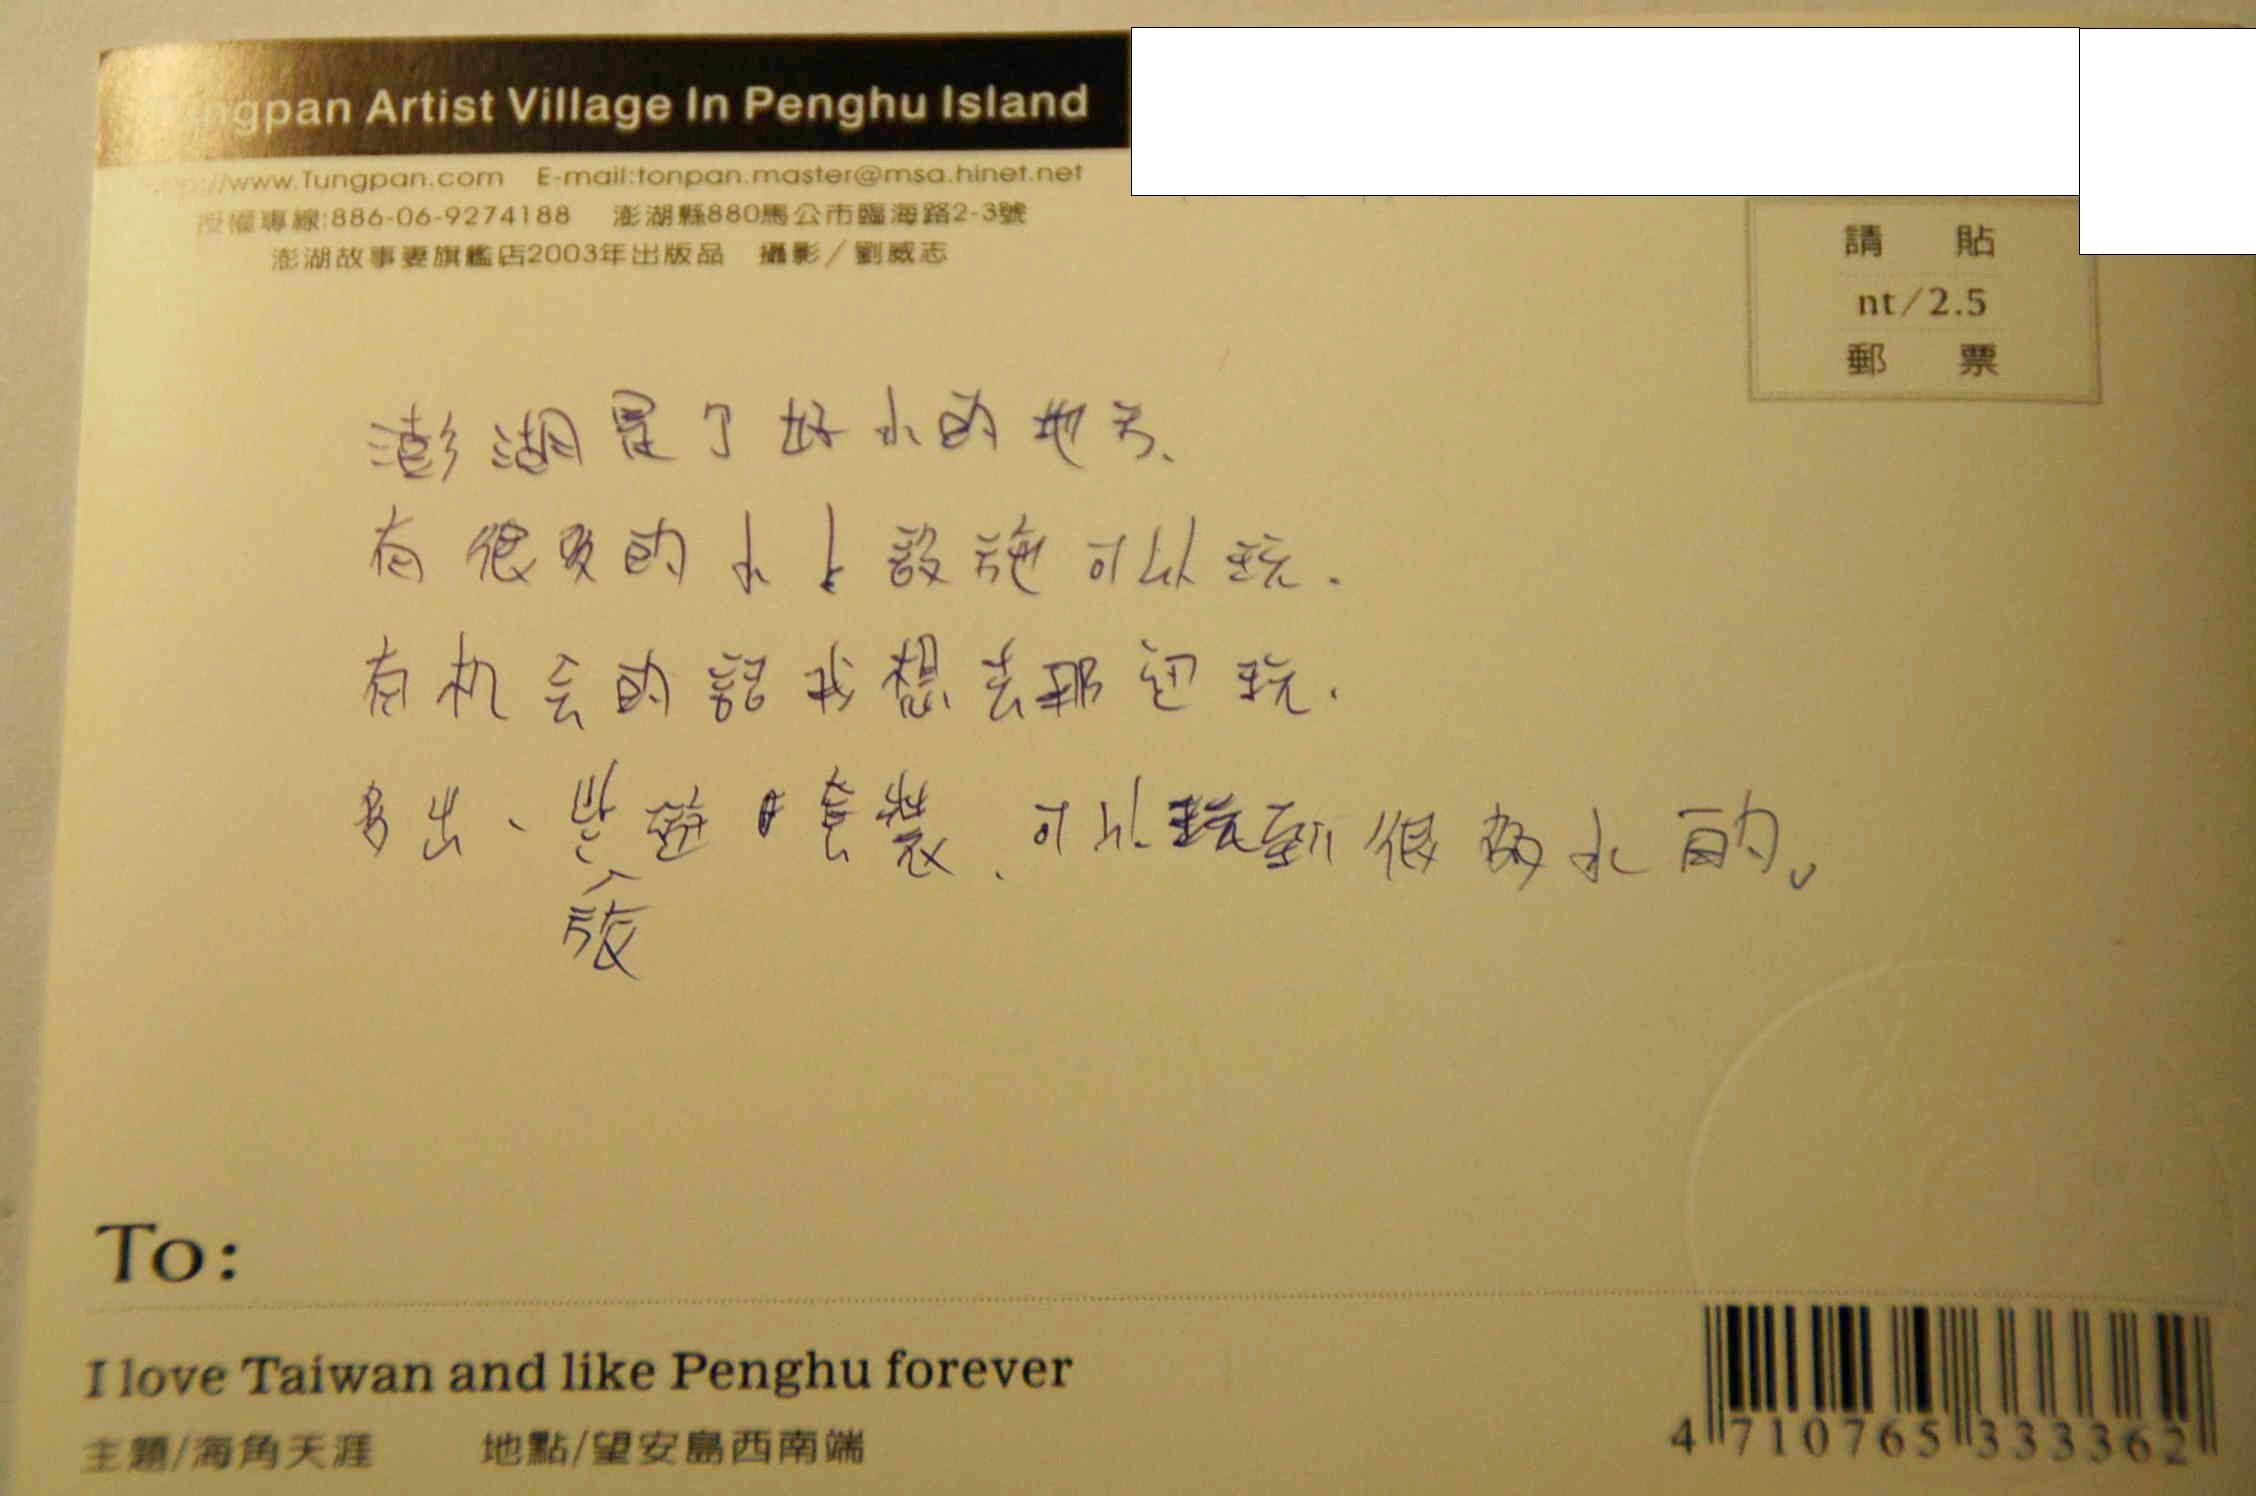 Tungpan Artist Village In Penghu Island
http://www.Tungpan.com E-mail:tonpan.master@msa.hinet.net
授權專線:886-06-9274188 澎湖縣880馬公市臨海路2-3號
澎湖故事妻旗艦店2003年出版品 攝影/劉威志
請 貼
nt/2.5
郵 票
澎湖是个好水的地方、
有很多的水上設施可以玩.
有机会的話我想去那边玩.
多出、些遊 套裝、可以玩到很多水的。
旅
To:
I love Taiwan and like Penghu forever
主題/海角天涯 地點/望安島西南端
4 710765 333362